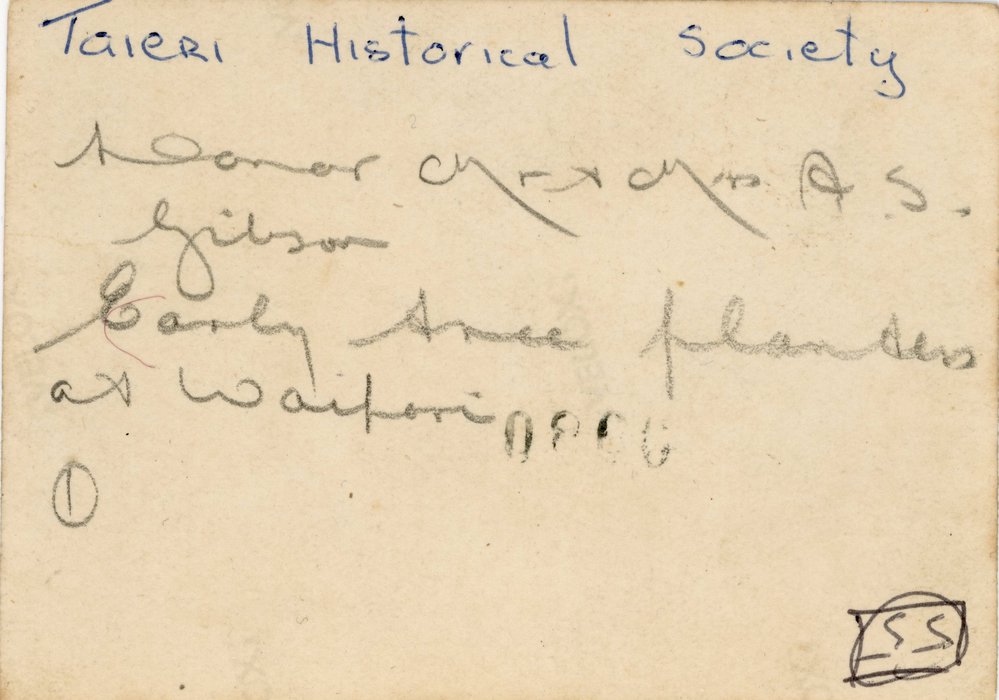 Taieri Historical Society
Donor Mr & Mrs A.S.
Gibson
Early tree planters
at Waipori
1